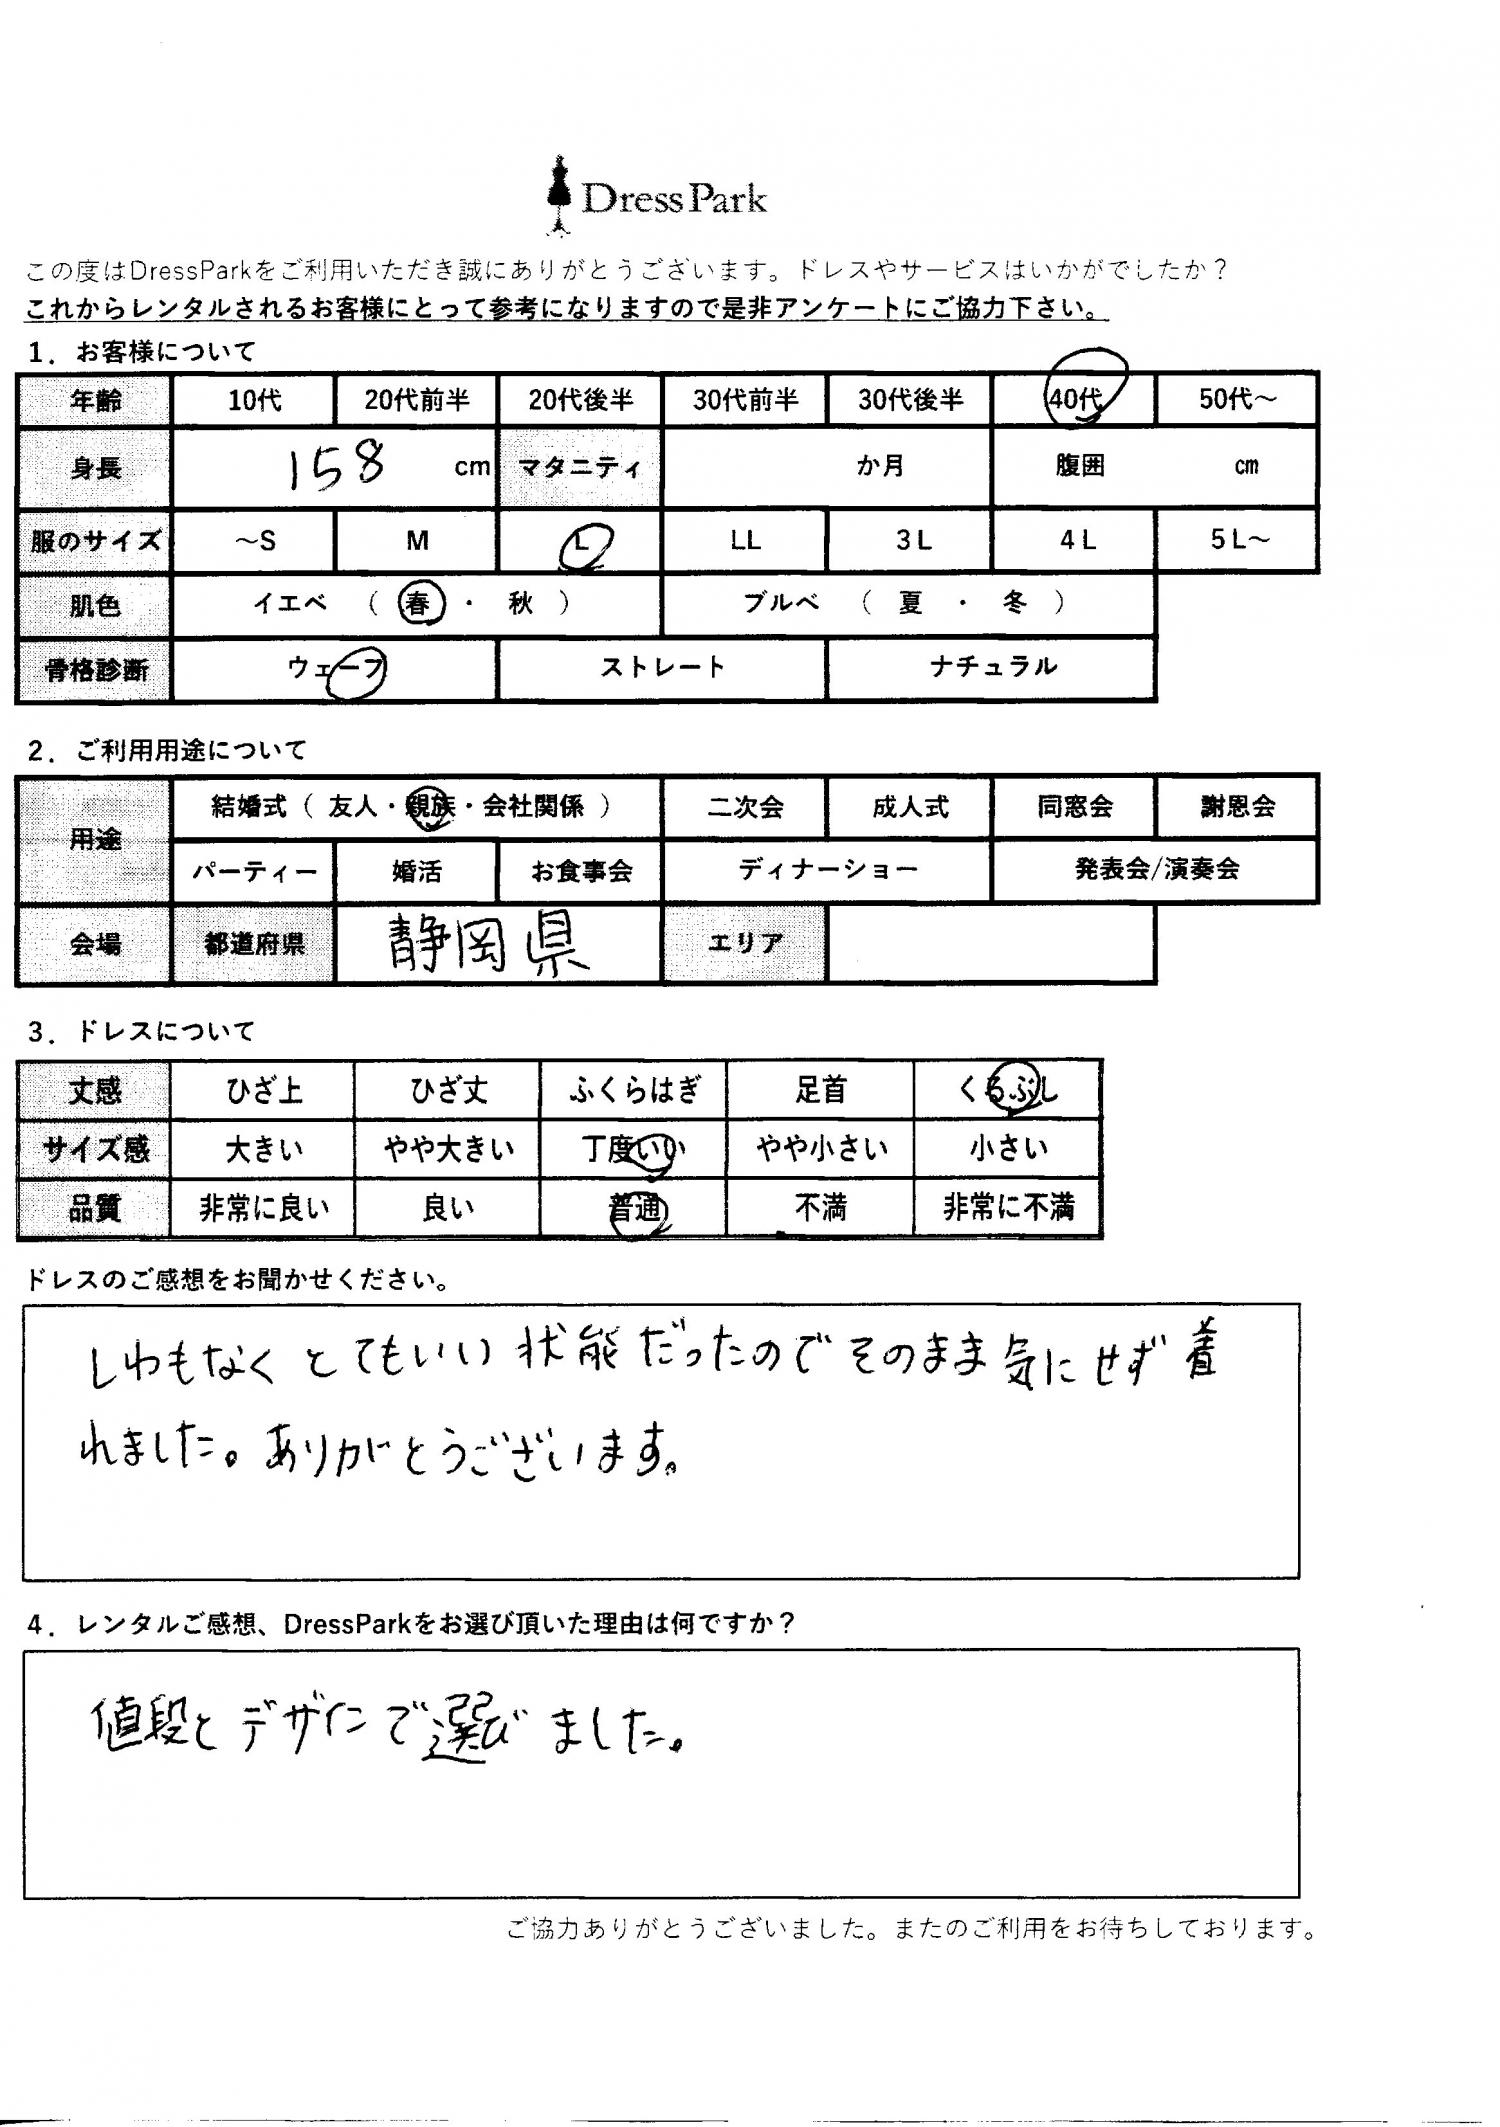 DressPark
この度はDressParkをご利用いただき誠にありがとうございます。ドレスやサービスはいかがでしたか？
これからレンタルされるお客様にとって参考になりますので是非アンケートにご協力下さい。
1．お客様について
年齢 10代 20代前半 20代後半 30代前半 30代後半 40代 50代～
身長 158 cm マタニティ か月 腹囲 ㎝
服のサイズ ～S M L LL 3L 4L 5L～
肌色 イエベ （ 春 ・ 秋 ） ブルベ （ 夏 ・ 冬 ）
骨格診断 ウェーブ ストレート ナチュラル
2．ご利用用途について
用途 結婚式（ 友人・親族・会社関係 ） 二次会 成人式 同窓会 謝恩会
パーティー 婚活 お食事会 ディナーショー 発表会/演奏会
会場 都道府県 静岡県 エリア
3．ドレスについて
丈感 ひざ上 ひざ丈 ふくらはぎ 足首 くるぶし
サイズ感 大きい やや大きい 丁度いい やや小さい 小さい
品質 非常に良い 良い 普通 不満 非常に不満
ドレスのご感想をお聞かせください。
しわもなくとてもいい状能だったのでそのまま気にせず着
れました。ありがとうございます。
4．レンタルご感想、DressParkをお選び頂いた理由は何ですか？
値段とデザインで選びました。
ご協力ありがとうございました。またのご利用をお待ちしております。